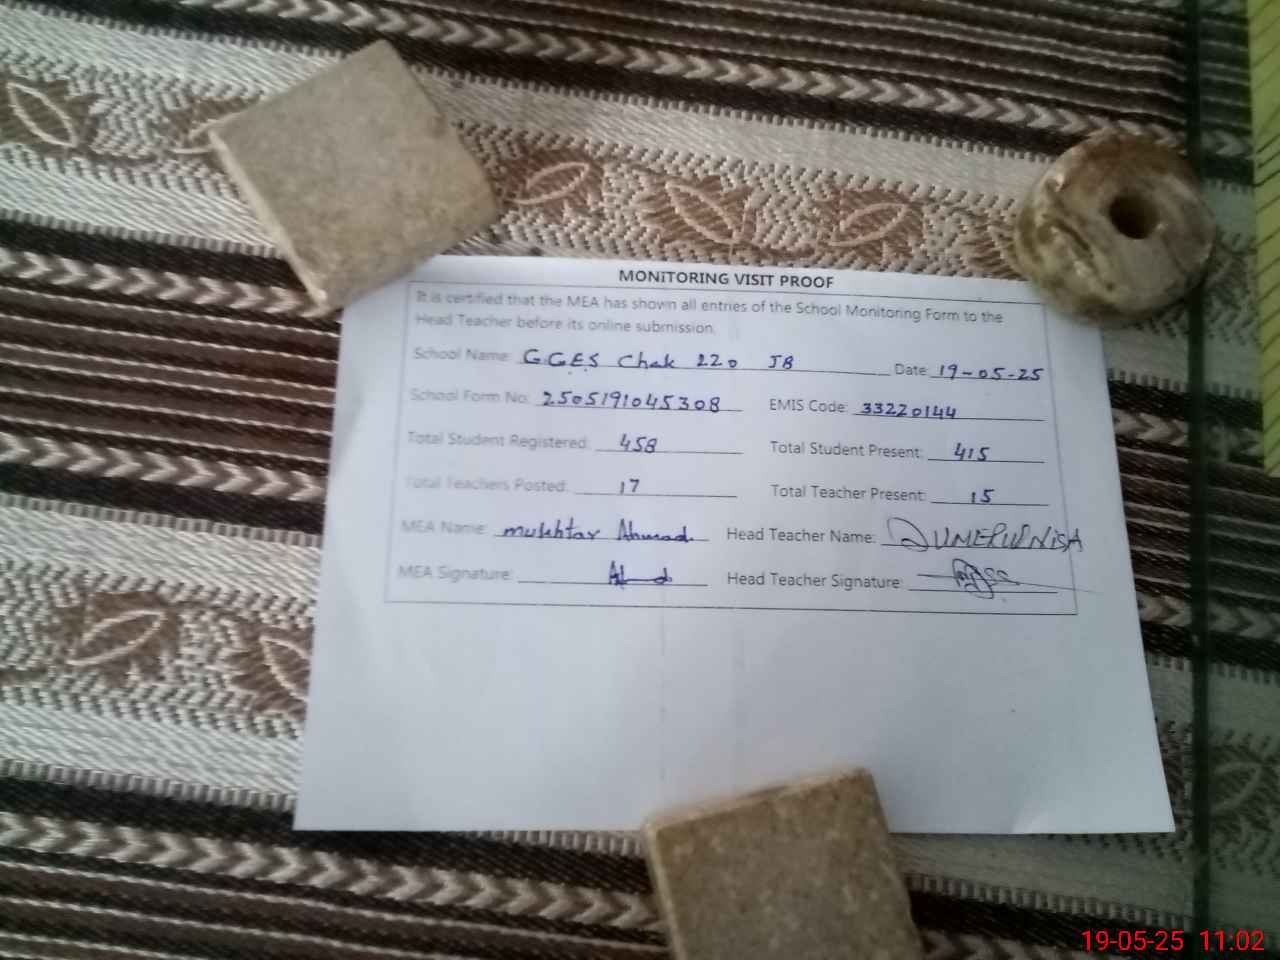 MONITORING VISIT PROOF
It is certified that the MEA has shown all entries of the School Monitoring Form to the
Head Teacher before its online submission.
School Name: G.G.E.S Chak 220 JB Date: 19-05-25
School Form No: 2505191045308 EMIS Code: 33220144
Total Student Registered: 458 Total Student Present: 415
Total Teachers Posted: 17 Total Teacher Present: 15
MEA Name: mukhtar Ahmad Head Teacher Name:
MEA Signature: Head Teacher Signature:
19-05-25 11:02